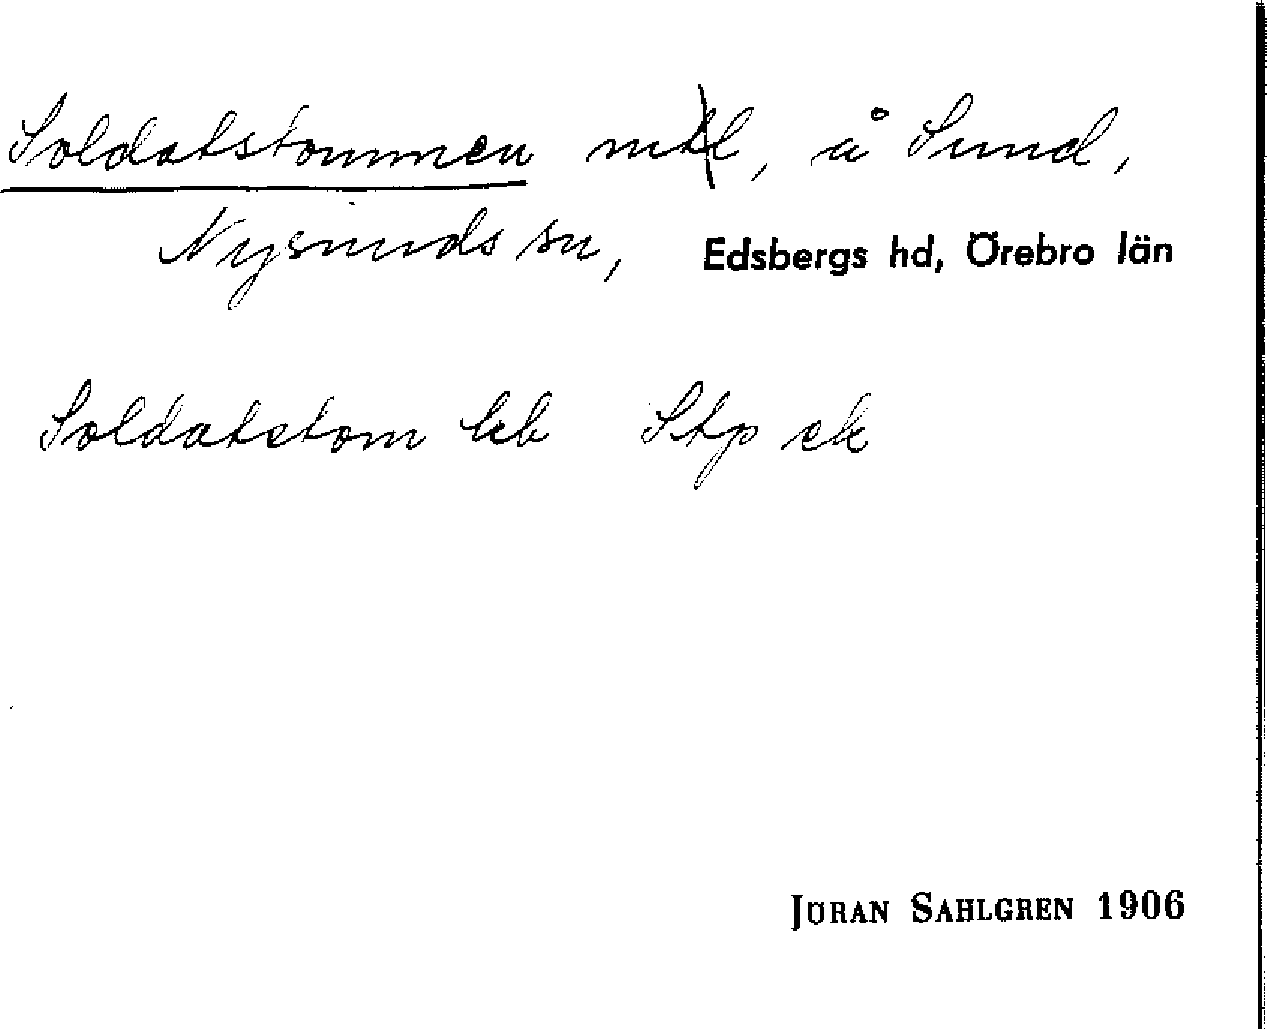 Soldatstommen mtl, å Sund,
Nysunds sn, Edsbergs hd, Örebro län
Soldatstom kb Stp ek
JÖRAN SAHLGREN 1906